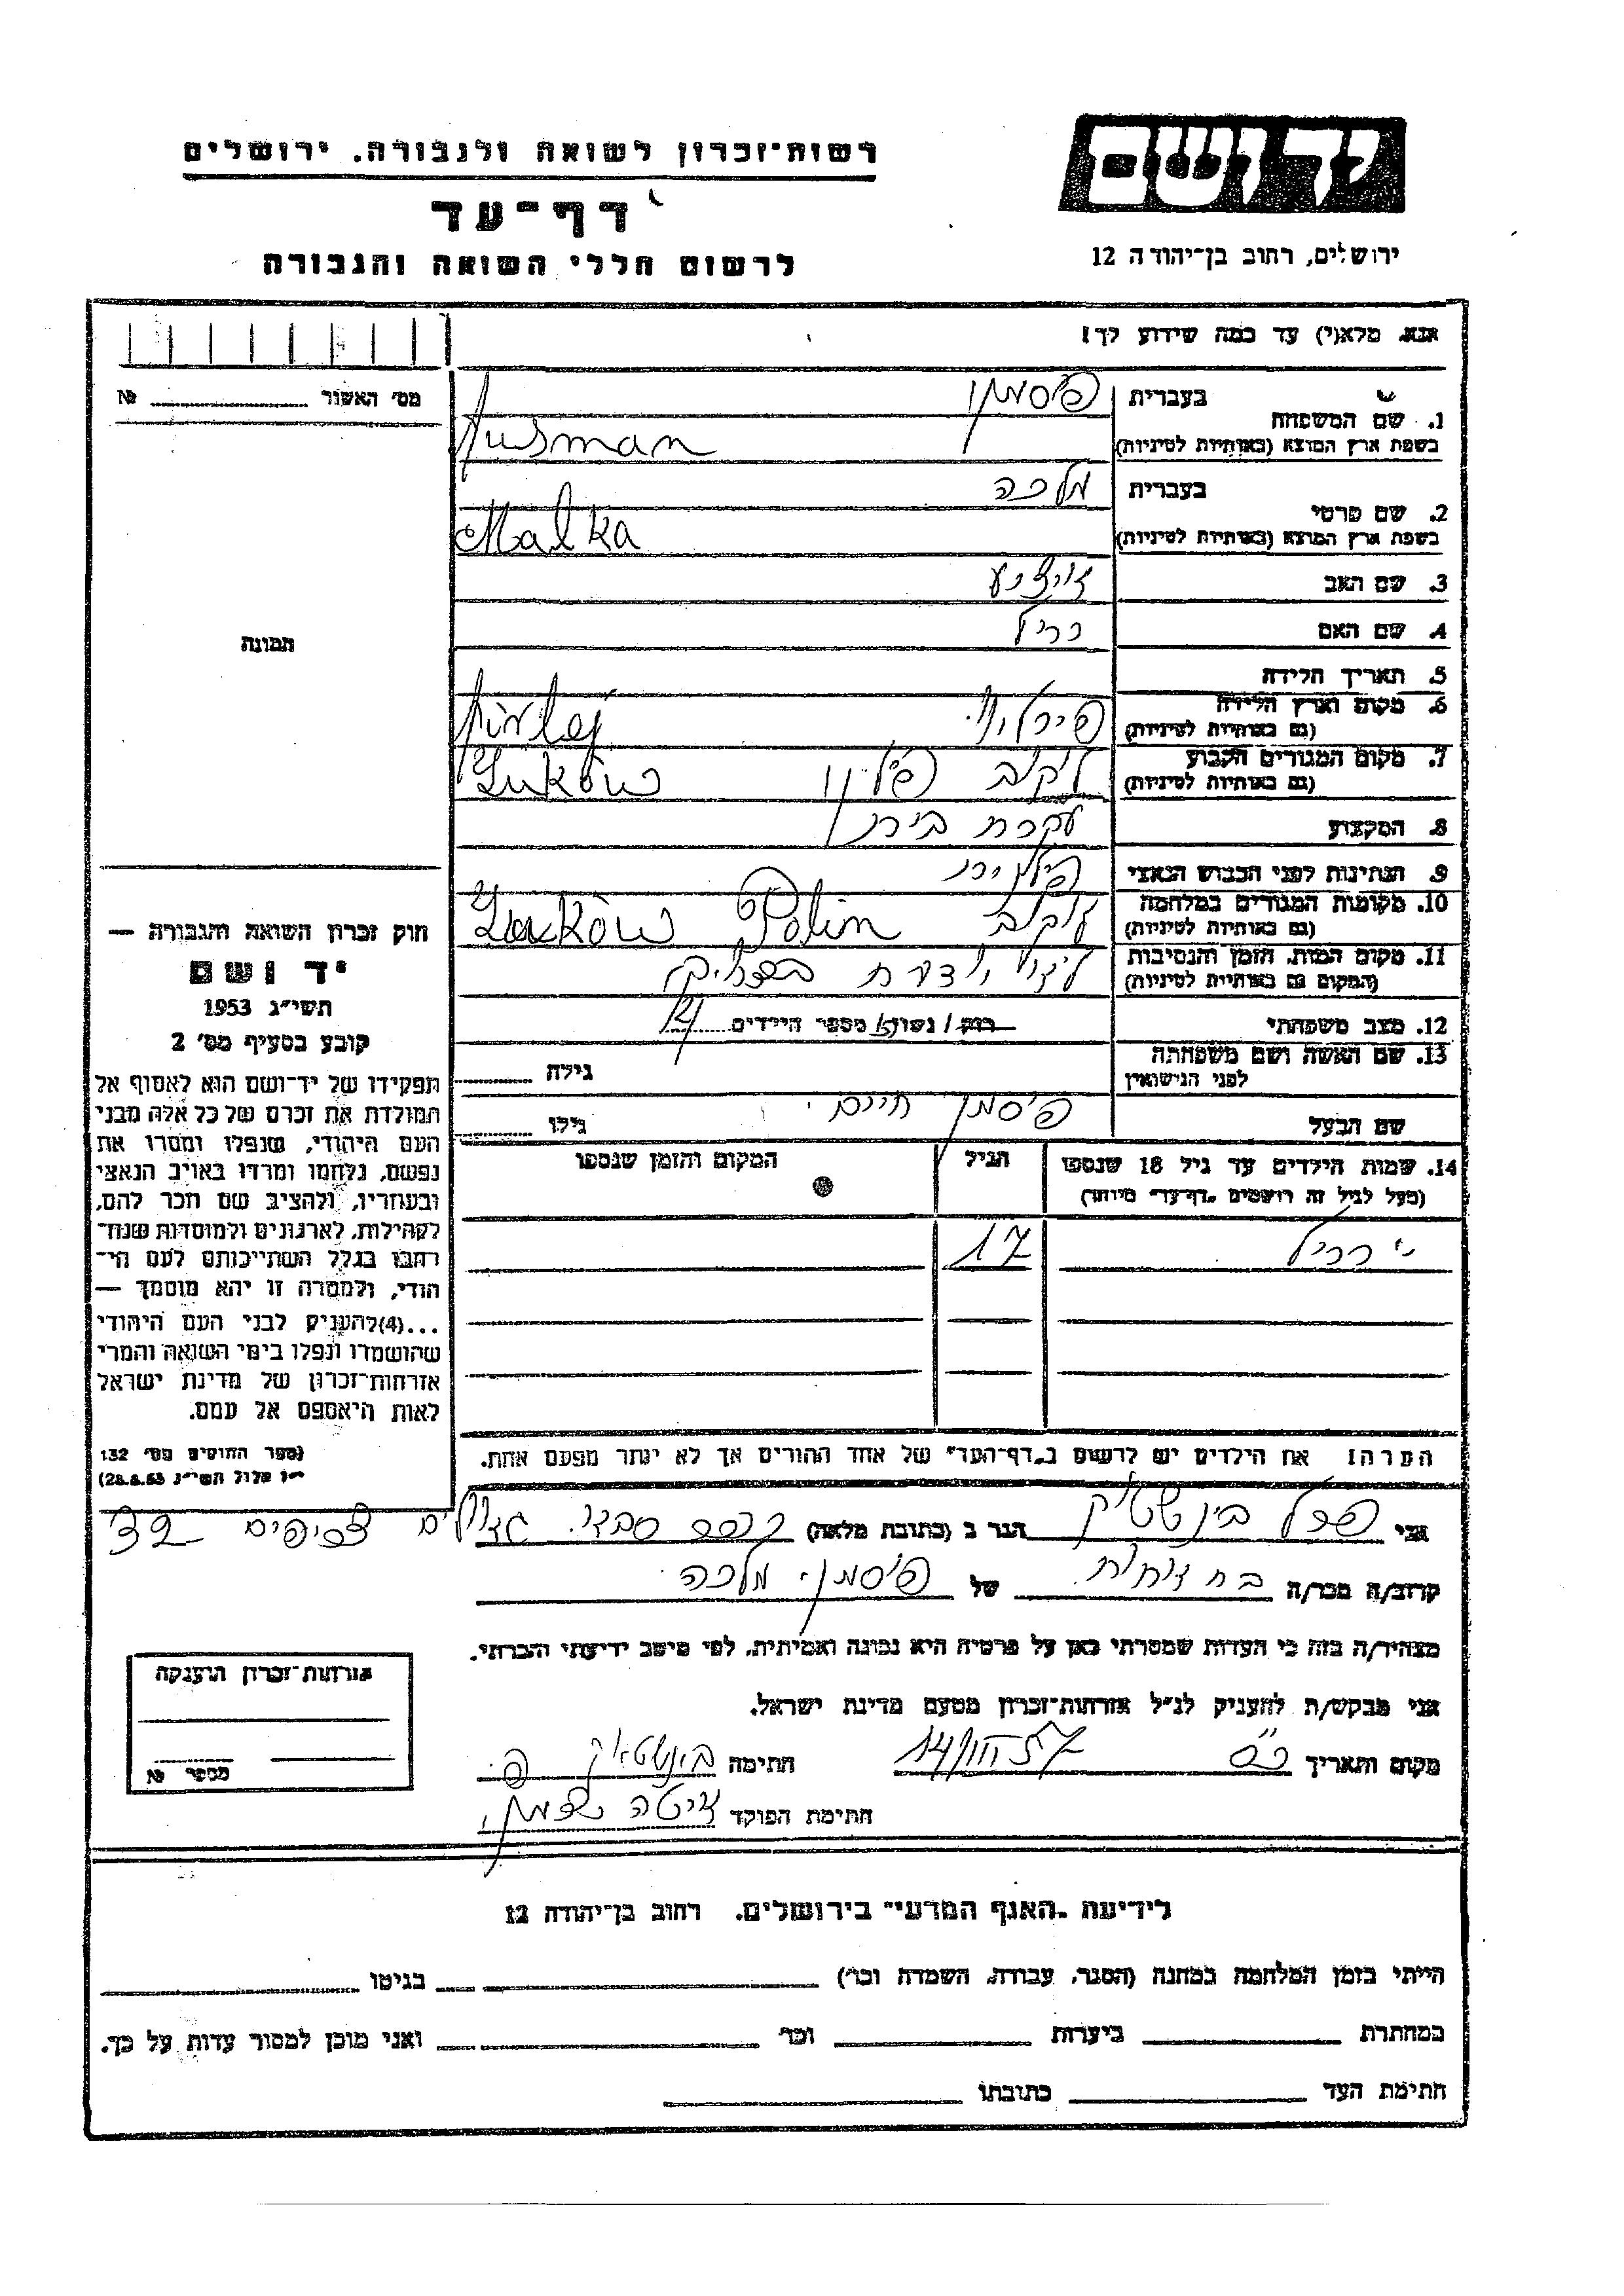 יד ושם
ירושלים, רחוב בן־יהודה 12
רשות־זכרון לשואה ולגבורה, ירושלים
דף־עד
לרשום חללי השואה והגבורה
אנא, מלא(י) עד כמה שידוע לך!
מס׳ האשור № 
תמונה
1. שם המשפחה
בעברית פיסמן
בשפת ארץ המוצא (באותיות לטיניות)
2. שם פרטי
בעברית מלכה
בשפת ארץ המוצא (באותיות לטיניות) Malka
3. שם האב
4. שם האם
5. תאריך הלידה
6. מקום וארץ הלידה
(גם באותיות לטיניות)
7. מקום המגורים הקבוע לוקוב פולין
(גם באותיות לטיניות) Łuków
8. המקצוע עקרת בית
9. הנתינות לפני הכבוש הנאצי פולנית
10. מקומות המגורים במלחמה לוקוב
(גם באותיות לטיניות) Łuków Polin
11. מקום המות, הזמן והנסיבות
(המקום גם באותיות לטיניות)
12. מצב משפחתי רוק / נשוי / מספר הילדים
13. שם האשה ושם משפחתה
לפני הנישואין גילה
שם הבעל פיסמן חיים גילו
14. שמות הילדים עד גיל 18 שנספו הגיל המקום והזמן שנספו
(מעל לגיל זה רושמים „דף־עד״ מיוחד)
17
הערה! את הילדים יש לרשום ב„דף־העד״ של אחד ההורים אך לא יותר מפעם אחת.
חוק זכרון השואה והגבורה —
יד ושם
תשי״ג 1953
קובע בסעיף מס׳ 2
תפקידו של יד־ושם הוא לאסוף אל
המולדת את זכרם של כל אלה מבני
העם היהודי, שנפלו ומסרו את
נפשם, נלחמו ומרדו באויב הנאצי
ובעוזריו, ולהציב שם וזכר להם,
לקהילות, לארגונים ולמוסדות שנח־
רבו בגלל השתייכותם לעם הי־
הודי, ולמטרה זו יהא מוסמך —
...(4) להעניק לבני העם היהודי
שהושמדו ונפלו בימי השואה והמרי
אזרחות־זכרון של מדינת ישראל
לאות היאספם אל עמם.
(ספר החוקים מס׳ 132
י״ז אלול תשי״ג 28.8.53)
אני הגר ב (כתובת מלאה) 32
קרוב/ה מכר/ה בת דודה של פיסמן מלכה
מצהיר/ה בזה כי העדות שמסרתי כאן על פרטיה היא נכונה ואמיתית, לפי מיטב ידיעתי והכרתי.
אני מבקש/ת להעניק לנ״ל אזרחות־זכרון מטעם מדינת ישראל.
מקום ותאריך חתימה
חתימת הפוקד
אזרחות־זכרון הוענקה
מספר №
לידיעת „האגף המדעי״ בירושלים, רחוב בן־יהודה 12
הייתי בזמן המלחמה במחנה (הסגר, עבודה, השמדה וכו׳) בגיטו
במחתרת ביערות וכו׳ ואני מוכן למסור עדות על כך.
חתימת העד כתובתו